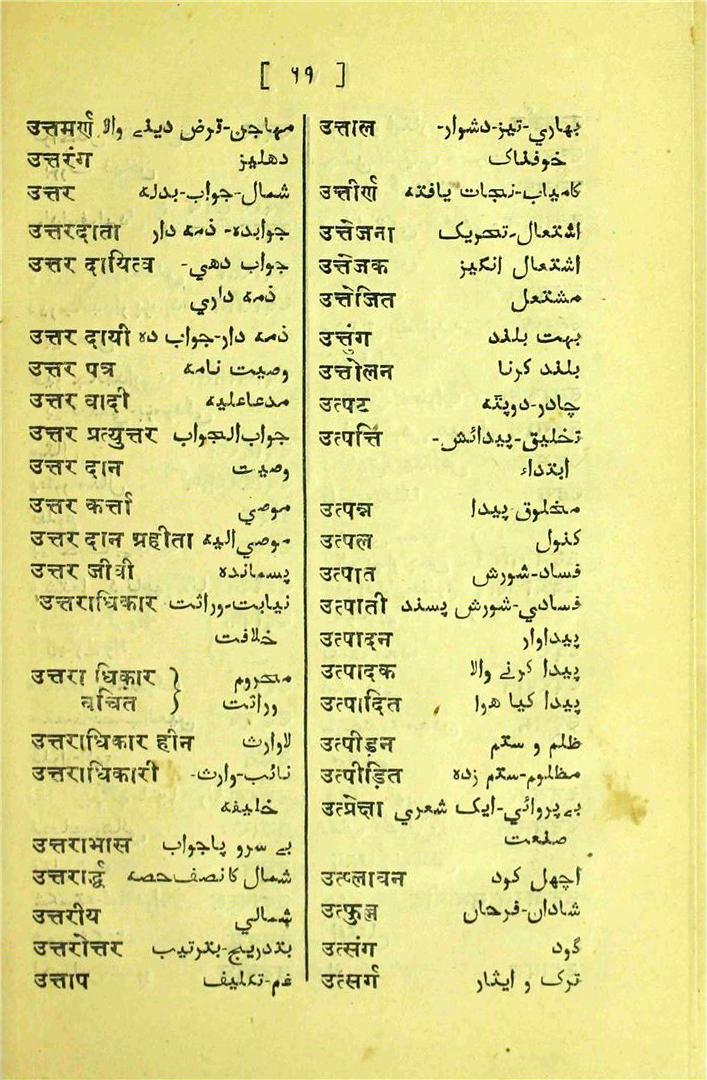 [ ६१ ]
उत्तमर्ण مهاجن-قرض دينے والا
उत्तरंग دهليز
उत्तर شمال-جواب-بدله
उत्तरदाता جوابده-ذمه دار
उत्तर दायित्व جواب دهي-
ذمه داري
उत्तर दायी ذمه دار-جواب ده
उत्तर पत्र وصيت نامه
उत्तर वादी مدعاعليه
उत्तर प्रत्युत्तर جواب‌الجواب
उत्तर दान وصيت
उत्तर कर्त्ता موصي
उत्तर दान प्रहीता موصي‌اليه
उत्तर जीवी پسمانده
उत्तराधिकार نيابت-وراثت
خلافت
उत्तरा धिकार } محروم
वचित } وراثت
उत्तराधिकार हीन لاوارث
उत्तराधिकारी نائب-وارث-
خليفه
उत्तराभास بے سرو پاجواب
उत्तरार्द्ध شمال کا نصف حصه
उत्तरीय شمالي
उत्तरोत्तर بتدريج-بترتيب
उत्ताप غم-تکليف
उत्ताल بهاري-تيز-دشوار-
خوفناک
उत्तीर्ण کامياب-نجات يافته
उत्तेजना اشتعال-تحريک
उत्तेजक اشتعال انگيز
उत्तेजित مشتعل
उत्तुंग بهت بلند
उत्तोलन بلند کرنا
उत्पट چادر-دوپٹه
उत्पत्ति تخليق-پيدائش-
ابتداء
उत्पन्न مخلوق پيدا
उत्पल کنول
उत्पात فساد-شورش
उत्पाती فسادي-شورش پسند
उत्पादन پيداوار
उत्पादक پيدا کرنے والا
उत्पादित پيدا کيا هوا
उत्पीड़न ظلم و ستم
उत्पीड़ित مظلوم-ستم زده
उत्प्रेक्षा بےپروائي-ايک شعري
صنعت
उत्प्लावन اچهل کود
उत्फुल्ल شادان-فرحاں
उत्संग گود
उत्सर्ग ترک و ايثار